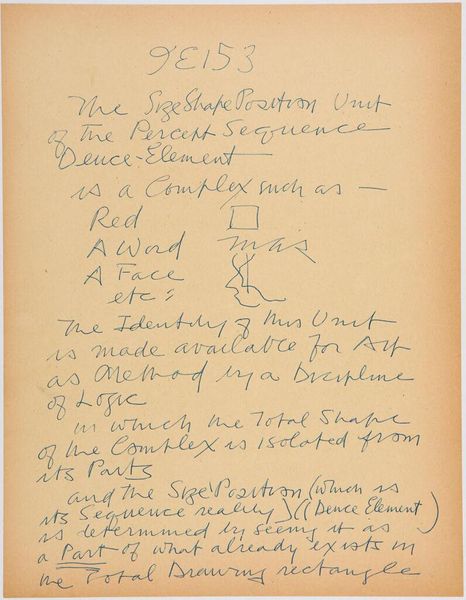 9E153
The SizeShapePosition Unit
of the Percept Sequence
Deuce-Element
is a Complex such as —
Red
A Word mas
A Face
etc:
The Identity of this Unit
is made available for Art
as Method by a Discipline
of Logic
in which the Total Shape
of the Complex is isolated from
its Parts
and the Size Position (which is
its Sequence reality) (Deuce Element)
is determined by seeing it as
a Part of what already exists in
the Total Drawing rectangle